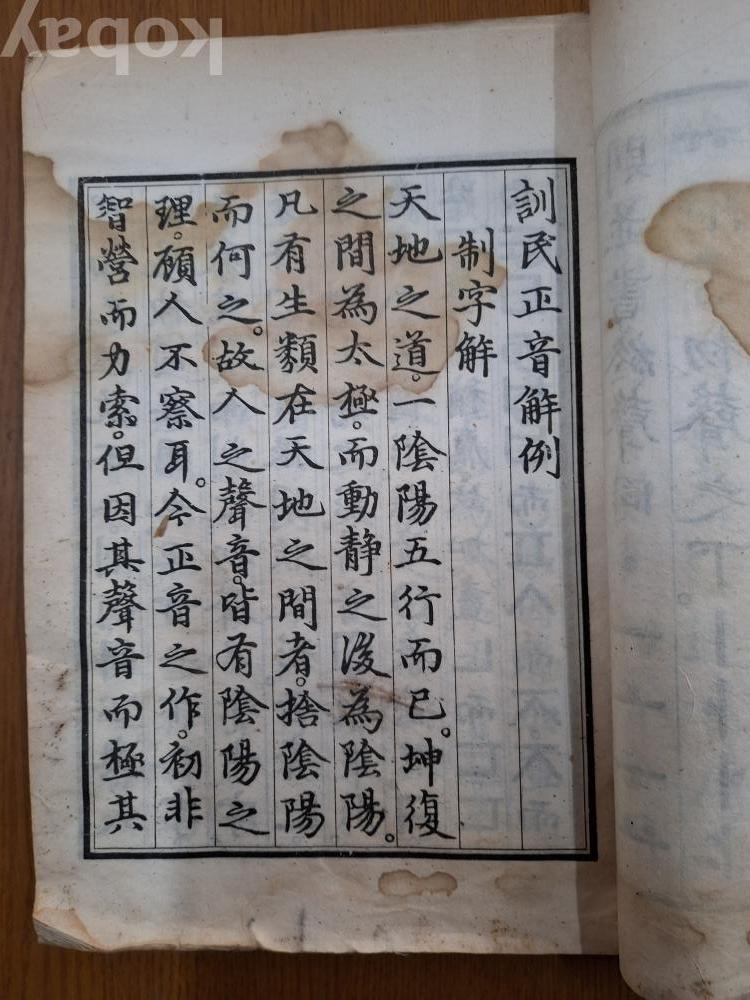 訓民正音解例
制字解
天地之道。一陰陽五行而已。坤復
之間為太極。而動静之後為陰陽。
凡有生類在天地之間者。捨陰陽
而何之。故人之聲音。皆有陰陽之
理。顧人不察耳。今正音之作。初非
智營而力索。但因其聲音而極其
kobay